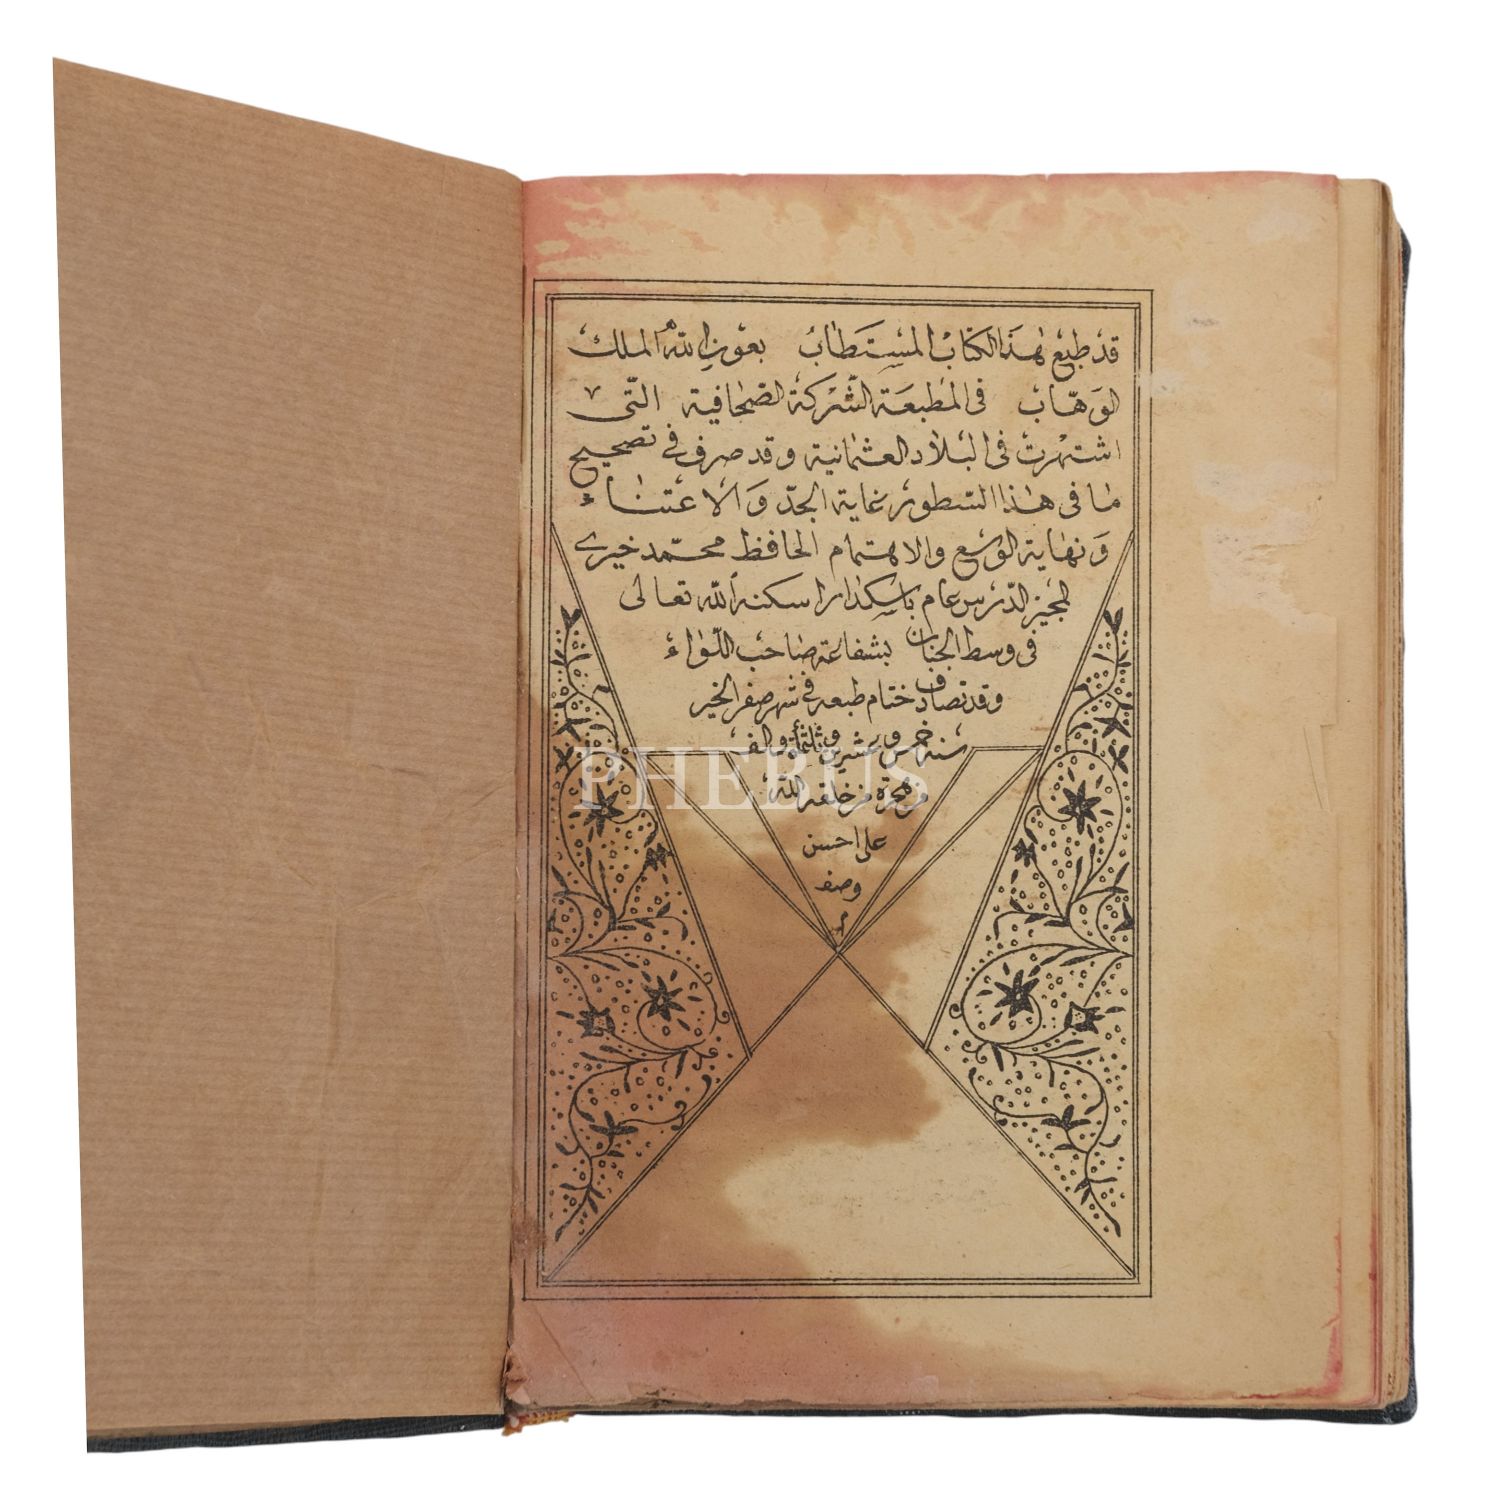 قد طبع هذا الكتاب المستطاب بعون الله الملك
الوهّاب فى المطبعة الشّركة الصّحافية الّتى
اشتهرت فى البلاد العثمانية وقد صرف فى تصحيح
ما فى هذا السّطور غاية الجدّ والاعتناء
ونهاية الوسع والاهتمام الحافظ محمّد خيرى
المجيز الدّرس عام باسكدار اسكنه الله تعالى
فى وسط الجنان بشفاعة صاحب اللّواء
وقد تصادف ختام طبعه فى شهر صفر الخير
سنه خمس وعشرين وثلثمأة والف
من هجرة من خلقه الله
على احسن
وصف
م
PHEBUS